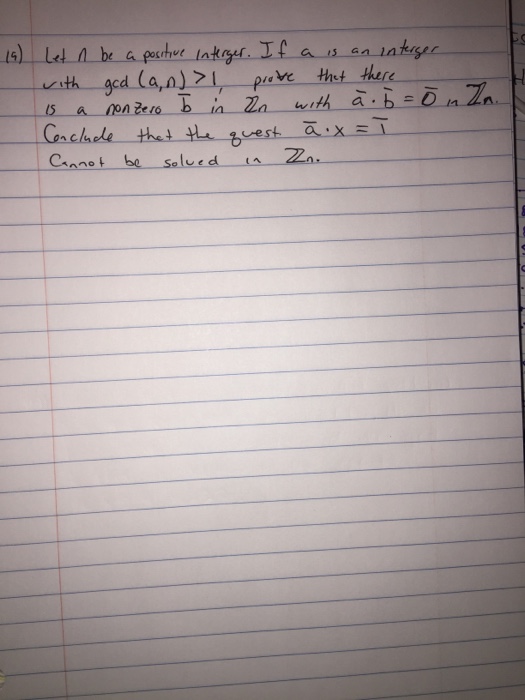 19) Let n be a positive interger. If a is an interger
with gcd (a,n) > 1, prove that there
is a nonzero b̄ in Zn with ā · b̄ = 0̄ in Zn.
Conclude that the quest ā · x = 1̄
Cannot be solved in Zn.